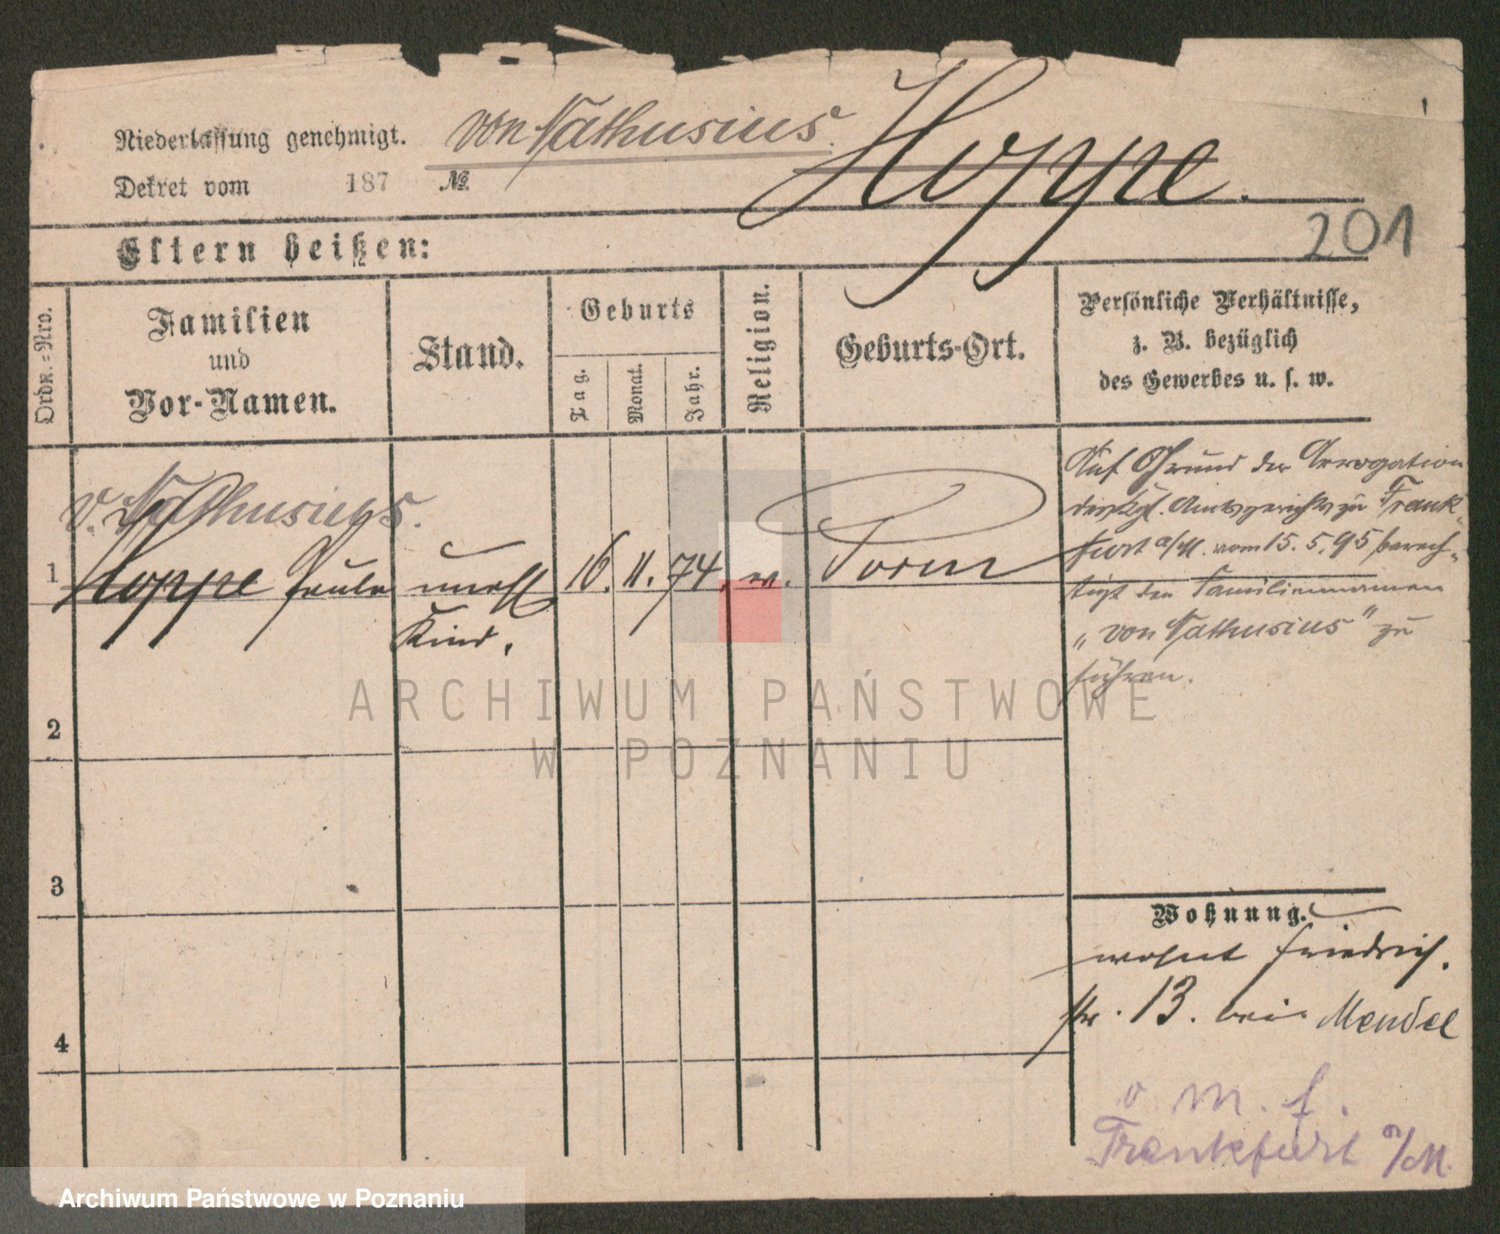 Niederlassung genehmigt. von Nathusius. Hoppe.
Dekret vom 187 №
201
Eltern heißen:
Ordn.=Nro.
Familien
und
Vor-Namen.
Stand.
Geburts
Tag.
Monat.
Jahr.
Religion.
Geburts-Ort.
Persönliche Verhältnisse,
z. B. bezüglich
des Gewerbes u. s. w.
v. Nathusius.
1 Hoppe Paula unehl 16. 11. 74. ev. Posen
Kind.
Auf Grund der Arrogation
des Kgl. Amtsgerichts zu Frank-
furt a/M. vom 15. 5. 95 berech-
tigt den Familiennamen
„von Nathusius" zu
führen.
2
3
4
Wohnung.
wohnt Friedrich-
str. 13. bei Mendel
v m. f.
Frankfurt a/M.
ARCHIWUM PAŃSTWOWE
W POZNANIU
Archiwum Państwowe w Poznaniu